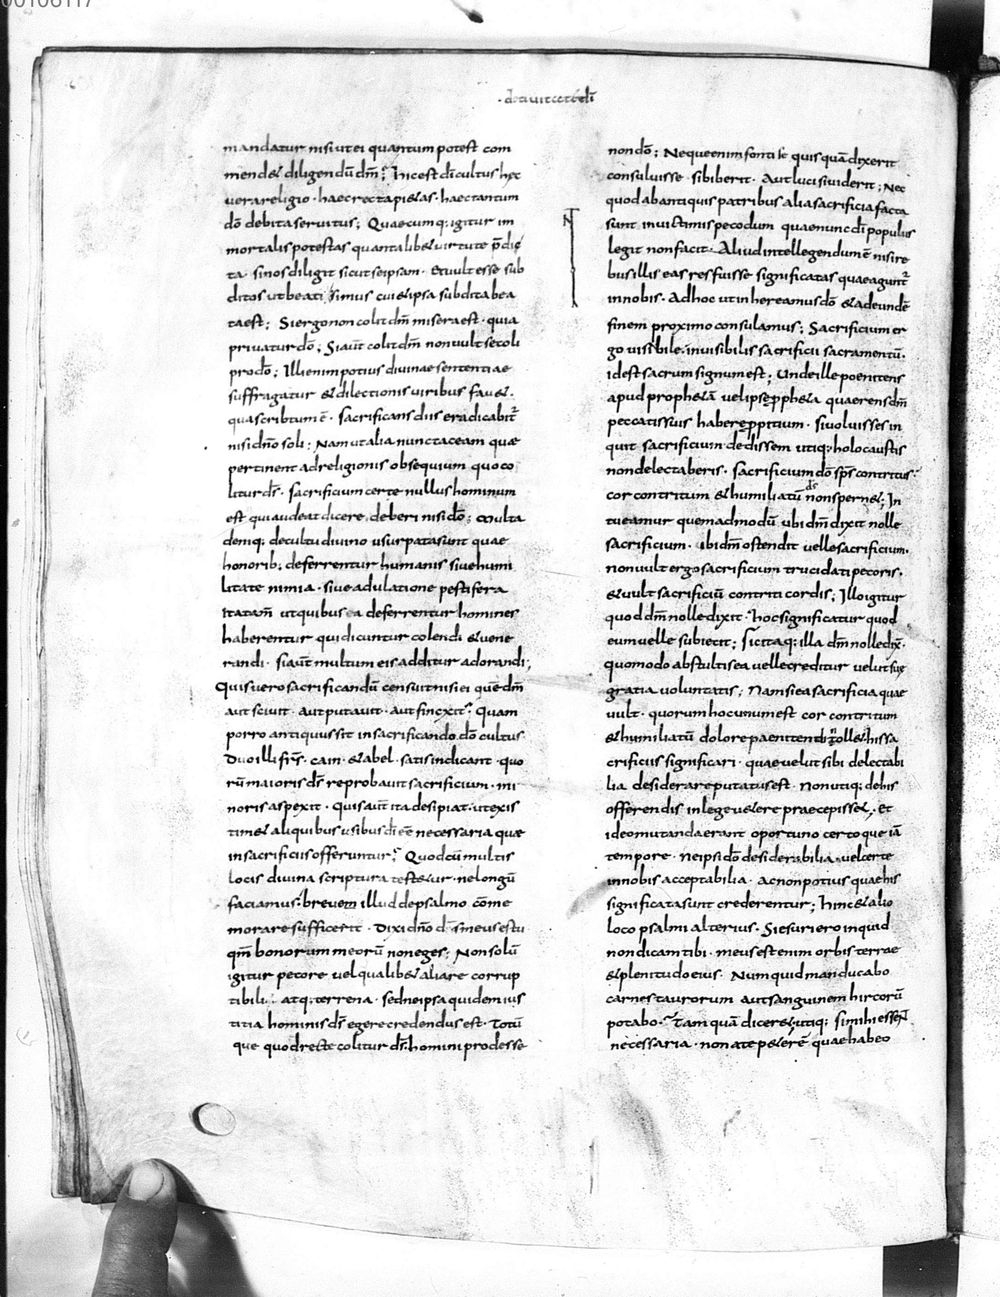 00106117
· de civitate dī
mandatur nisi ut ei quantum potest com
mendet diligendū dm̄; Hic est dī cultus hęc
vera religio · haec recta pietas · haec tantum
dō debita servitus; Quaecumq; igitur im
mortalis potestas quantalibet virtute p̄dic
ta · si nos diligit sicut seipsam · et vult esse sub
ditos ut beati simus cui et ipsa subdita bea
ta est; Si ergo non colit dm̄ misera est · quia
privatur dō; Si aut̄ colit dm̄ non vult se coli
pro dō; Illi enim potius divinae sententiae
suffragatur et dilectionis viribus favet ·
qua scribtum ē · sacrificans diis eradicabit̄
nisi dn̄o soli; Nam ut alia nunc taceam quae
pertinent ad religionis obsequium quo co
litur ds̄ · sacrificium certe nullus hominum
est qui audeat dicere deberi nisi dō; Multa
deniq; de cultu divino usurpata sunt quae
honorib; deferrentur humanis sive humi
litate nimia · sive adulatione pestifera
ita tam̄ ut quibus ea deferrentur homines
haberentur qui dicuntur colendi et vene
randi · si aut̄ multum eis additur adorandi;
Quis vero sacrificandū censuit nisi ei quē dm̄
aut scivit · aut putavit · aut finexit; Quam
porro antiquus sit in sacrificando dō cultus
duo illi frs̄ · cain · et abel · satis indicant · quo
rū maioris ds̄ reprobavit sacrificium · mi
noris aspexit · Quis aut̄ ita desipiat · ut exis
timet aliquibus usibus dī ēe necessaria quae
in sacrificiis offeruntur; Quod cū multis
locis divina scriptura testetur · ne longū
faciamus · brevem illud de psalmo com̄e
morare suffecerit · Dixi dn̄o ds̄ meus es tu
qm̄ bonorum meorū non eges; Non solū
igitur pecore vel qualibet alia re corrup
tibili · atq; terrena · sed ne ipsa quidem ius
titia hominis ds̄ egere credendus est · Totū
que quod recte colitur ds̄ · homini prodesse
non dō; Neque enim fonti se quisquā dixerit
consuluisse · si biberit · Aut luci si viderit; Nec
quod ab antiquis patribus alia sacrificia facta
sunt in victimis pecodum quae nunc dī populus
legit non facit · Aliud intellegendum ē nisi re
bus illis eas res fuisse significatas quae agunt̄
in nobis · Ad hoc ut inhereamus dō et ad eundē
finem proximo consulamus; Sacrificium er
go visibile invisibilis sacrificii sacramentū ·
id est sacrum signum est; Unde ille poenitens
apud prophetā vel ipse ppheta quaerens dm̄
peccatis suis habere ppitium · Si voluisses in
quit sacrificium dedissem utiq; holocaustis
non delectaberis · sacrificium dō sps̄ contritus ·
cor contritum et humiliatū ds̄ non spernet; In
tueamur quemadmodū ubi dm̄ dixit nolle
sacrificium · ibi dm̄ ostendit velle sacrificium ·
Non vult ergo sacrificium trucidati pecoris ·
et vult sacrificiū contriti cordis; Illo igitur
quod dm̄ nolle dixit · hoc significatur quod
eum velle subiecit; Sic itaq; illa dm̄ nolle dix̄ ·
quomodo ab stultis ea velle creditur velut suę
gratia voluntatis; Nam si ea sacrificia quae
vult · quorum hoc unum est cor contritum
et humiliatū dolore paenitendi nollet his sa
crificiis significari · quae velut sibi delectabi
lia desiderare putatus est · Non utiq; de his
offerendis in lege vetere praecepisset · Et
ideo mutanda erant oportuno certoque iā
tempore · ne ipsi dō desiderabilia vel certe
in nobis acceptabilia · ac non potius quae his
significata sunt crederentur; Hinc et alio
loco psalmi alterius · Si esuriero inquid
non dicam tibi · meus est enim orbis terrae
et plenitudo eius · Numquid manducabo
carnes taurorum aut sanguinem hircorū
potabo · Tamquā diceret utiq; si mihi essen̄t
necessaria · non a te peterē quae habeo